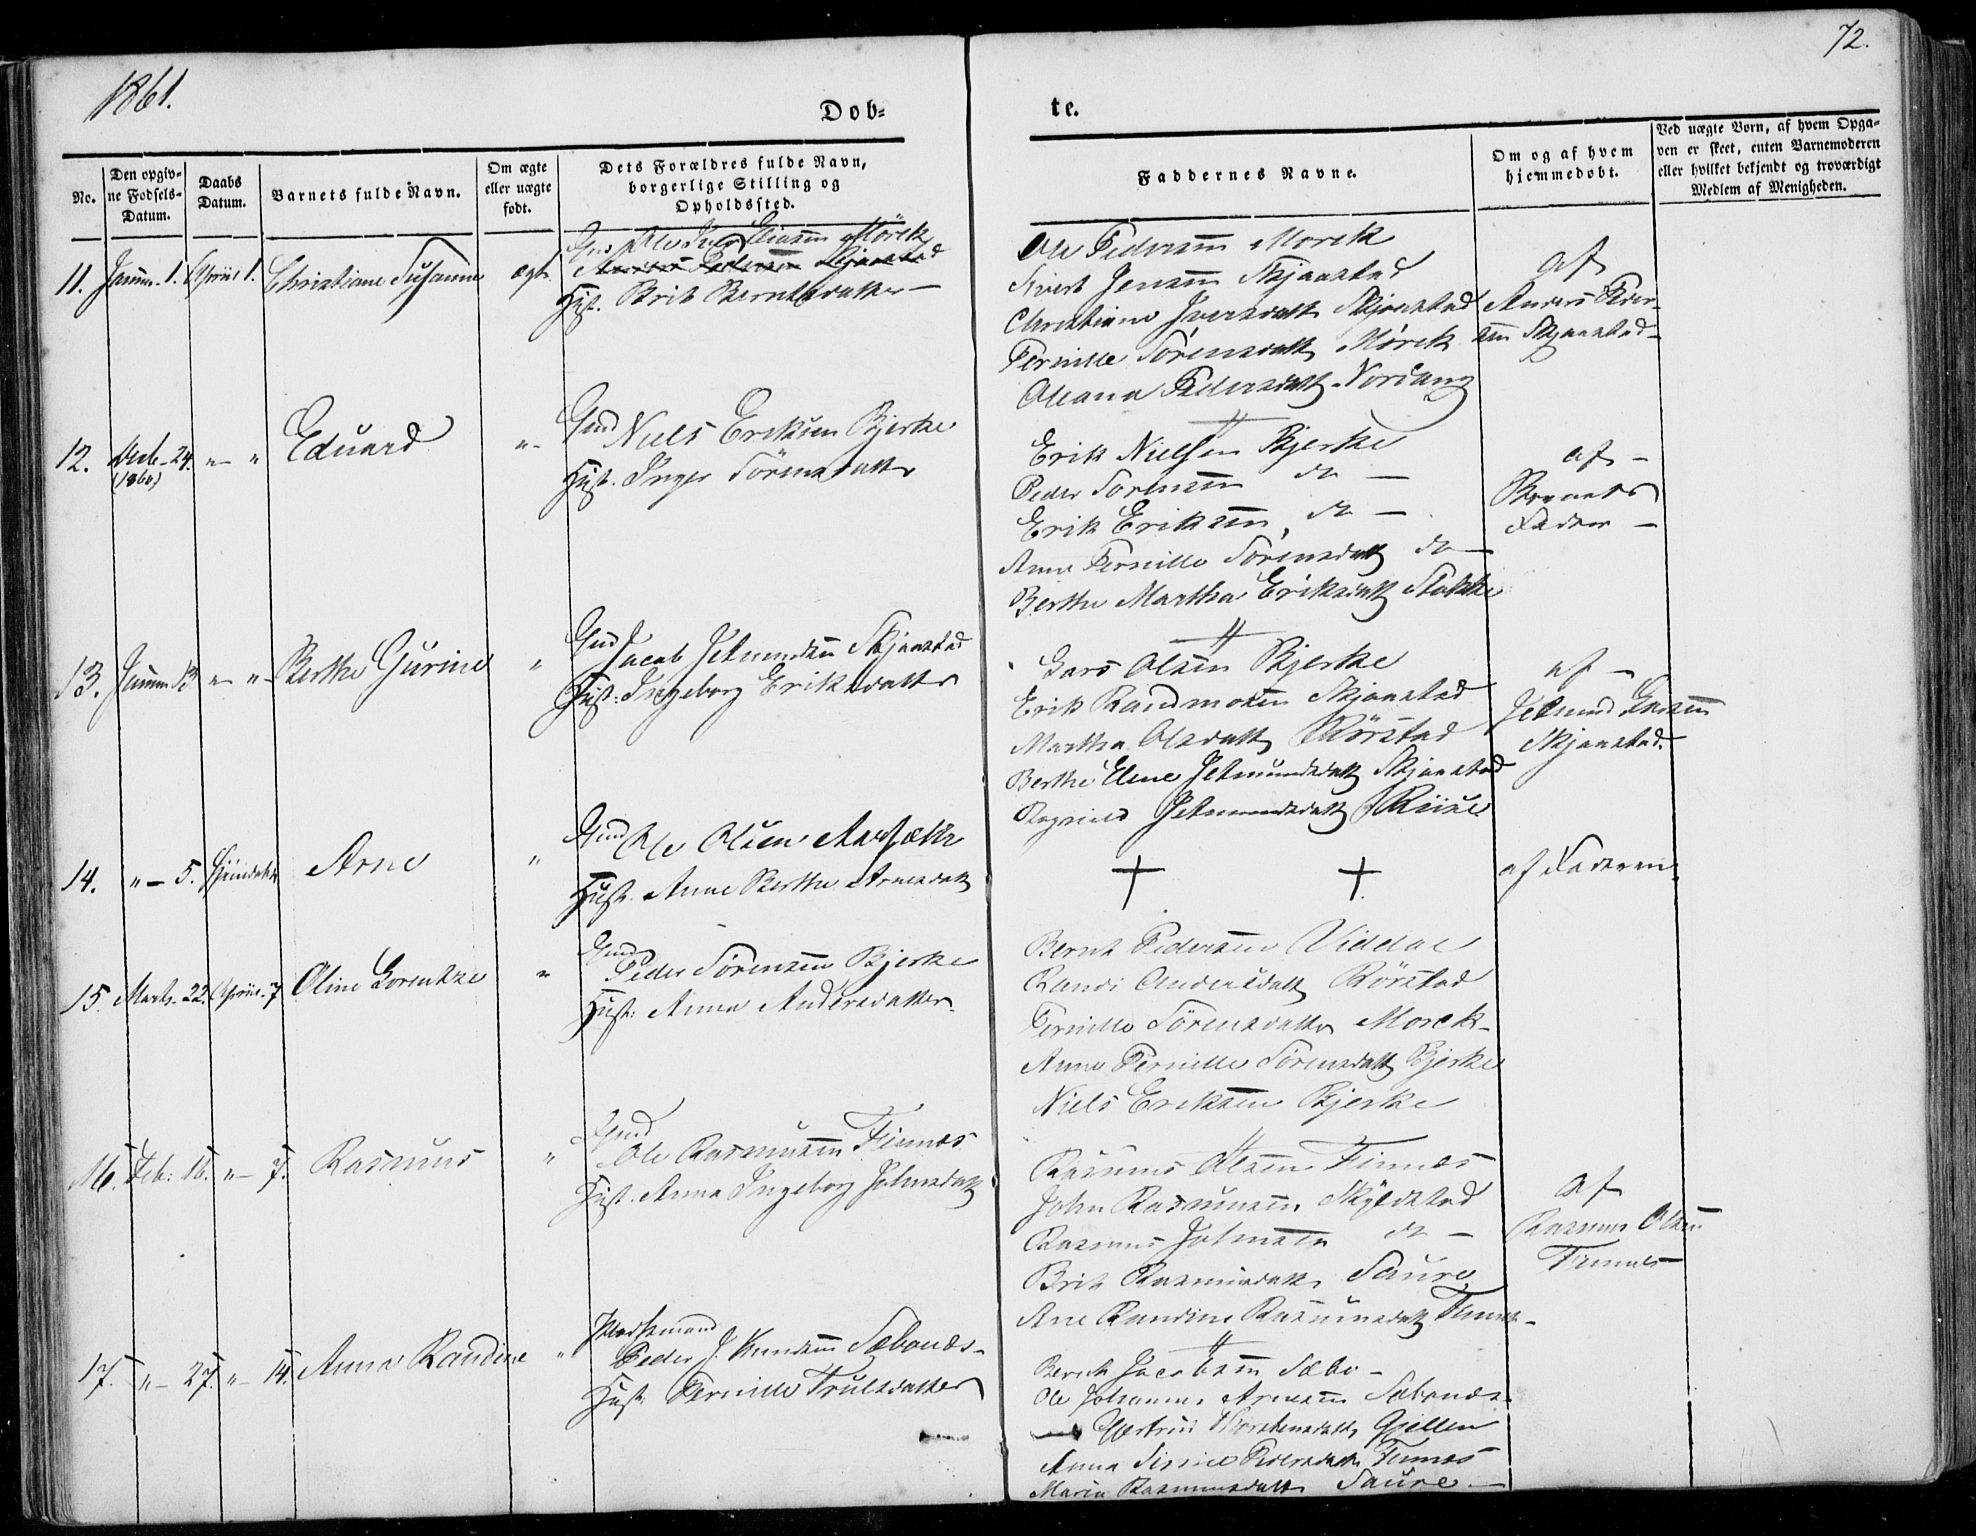 1861.
72.
Dob=
te.
No.
Den opgiv=
ne Fodsels=
Datum.
Daabs
Datum.
Barnets fulde Navn.
Om ægte
eller uægte
født.
Dets Forældres fulde Navn,
borgerlige Stilling og
Opholdssted.
Faddernes Navne.
Om og af hvem
hjemmedobt.
Ved uægte Born, af hvem Opga=
ven er skeet, enten Barnemoderen
eller hvilket bekjendt og troværdigt
Medlem af Menigheden.
11. 1. April 1. Christiane Susanne ægt
Eliasen Mörck
Anders Pedersen Skjaastad
Hust. Brit Berntsdatter
Ole Pedersen Morck
Sivert Jensen Skjaastad
Christiane Iversdatt Skjaastad
Pernille Sørensdatt Mörck
Oleana Pedersdatt Nordang
af
Anders Peder-
sen Skjaastad
12. Decb. 24. (1860) " " Eduard "
Gmd Niels Eriksen Bjerke
Hust. Inger Sörensdatter
Erik Nielsen Bjerke
Peder Sorensen do
Erik Eriksen, do
Anne Pernille Sørensdatt do
Berthe Martha Eriksdatt Stokke
af
Barnets
Fader
13. 13 " " Berthe Gurine "
Gmd Jacob Jetmundsen Skjaastad
Hust. Ingeborg Eriksdatter
Lars Olsen Bjerke
Erik Raudmoten Skjaastad
Martha Olsdatt Rörstad
Berthe Elene Jetmundsdatt Skjaastad
Ragnild Jetmundsdatt Riise
af
Jetmund Larsen
Skjaastad.
14. " 5. Arne "
Gmd Ole Olsen Aarsæth
Hust. Anne Berthe Arnesdatt
+ +
af Faderen
15. Marts. 22. April. 7 Oline Lorentze "
Gmd Peder Sörensen Bjerke
Hust: Anne Andersdatter
Bernt Pedersen Viddal
Randi Andersdatt Rörstad
Pernille Sörensdatter Morck
Anne Pernille Sörensdatt Bjerke
Niels Eriksen Bjerke
16. Feb: 16. " 7. Rasmus "
Gmd
Ole Rasmusen Finnes
Hust. Anna Ingeborg Johnsdatt
Rasmus Olsen Finnes
John Rasmusen Skylstad
Rasmus Johnsen do
Brit Rasmusdatt. Saure
Ane Randine Rasmusdatt Finnes
af
Rasmus Olsen
Finnes
17. " 27. " 14. Anne Randine "
Peder J. Knudsen Sæbönes
Hust. Pernille Trulsdatter
Bernt Jacobsen Sæbö
Ole Johannes Arnesen Sæbönes
Gjertrud Thorstensdatt Gjellen
Anna Sirine Pedersdatt Finnes
Maria Rasmusdatt Saure